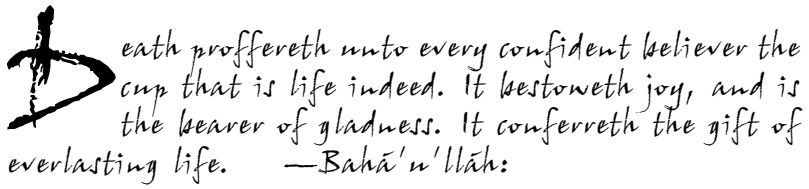 Death proffereth unto every confident believer the
cup that is life indeed. It bestoweth joy, and is
the bearer of gladness. It conferreth the gift of
everlasting life. —Bahá'u'lláh: